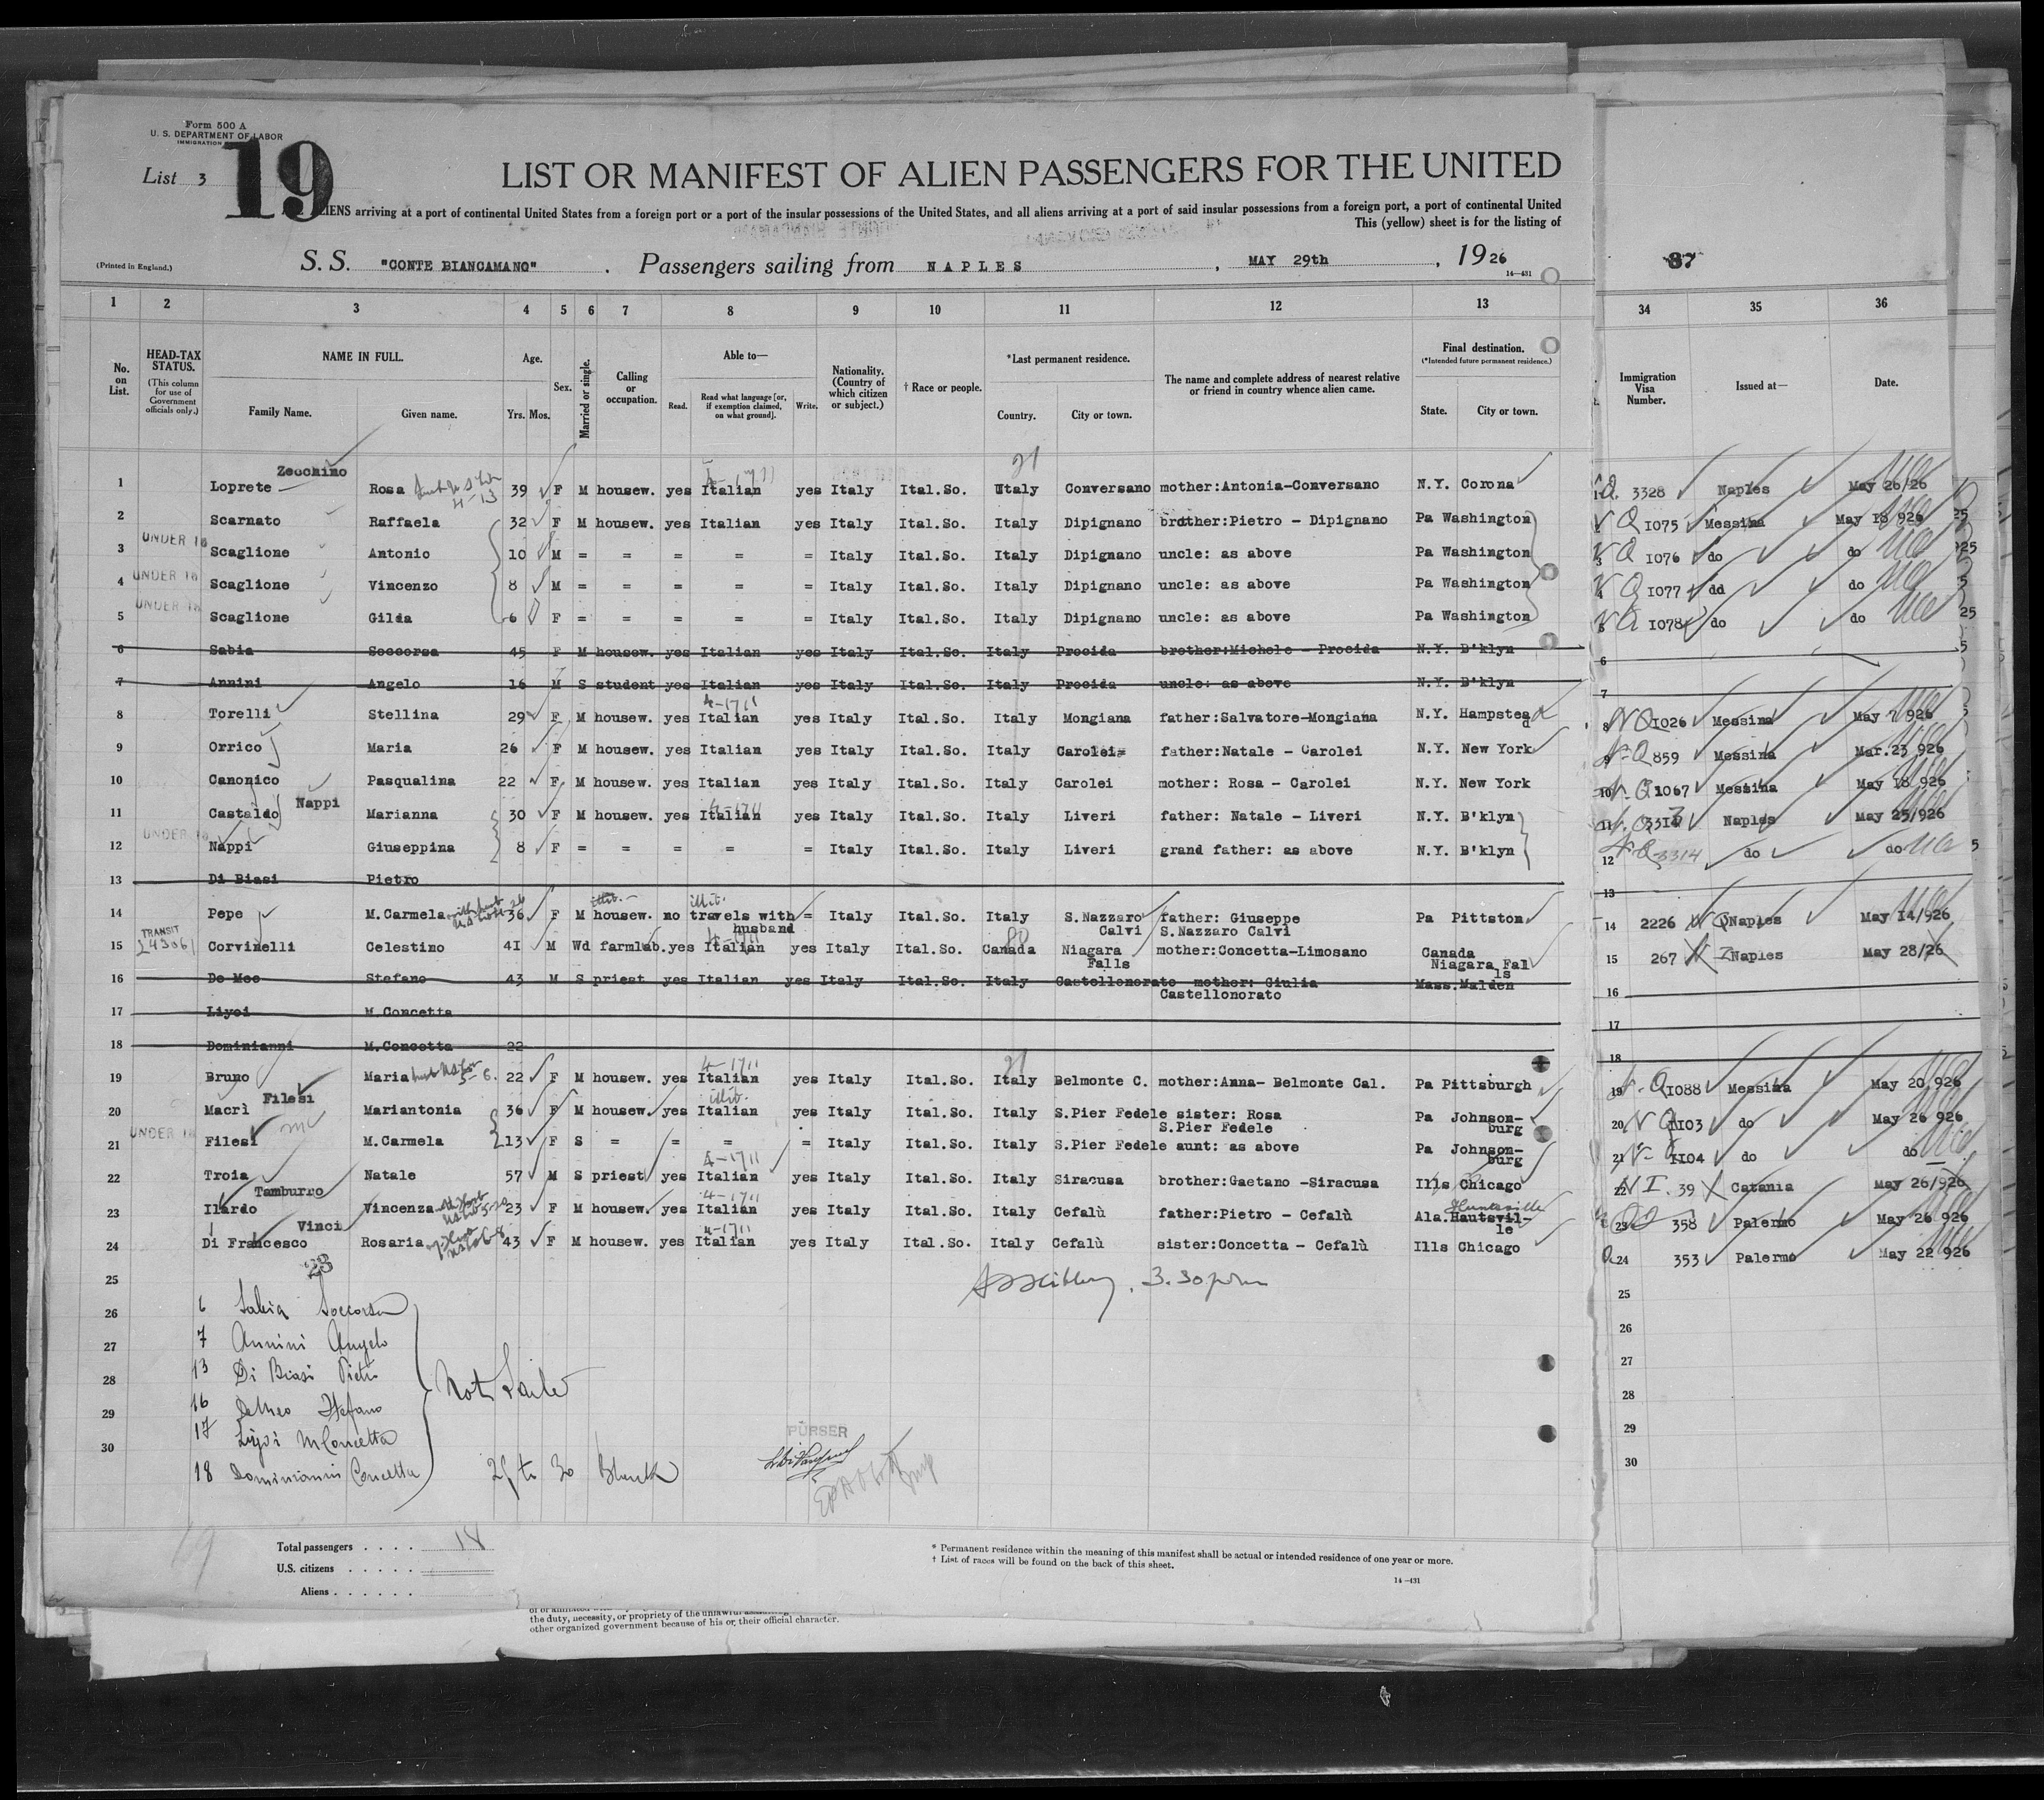 Form 500 A
U. S. DEPARTMENT OF LABOR
IMMIGRATION
List 3
19
LIST OR MANIFEST OF ALIEN PASSENGERS FOR THE UNITED
ALIENS arriving at a port of continental United States from a foreign port or a port of the insular possessions of the United States, and all aliens arriving at a port of said insular possessions from a foreign port, a port of continental United
This (yellow) sheet is for the listing of
(Printed in England.)
S. S. "CONTE BIANCAMANO" . Passengers sailing from NAPLES , MAY 29th , 1926
14—431
37
1 2 3 4 5 6 7 8 9 10 11 12 13 34 35 36
No. on List.
HEAD-TAX STATUS.
(This column for use of Government officials only.)
NAME IN FULL.
Family Name. Given name.
Age.
Yrs. Mos.
Sex.
Married or single.
Calling or occupation.
Able to—
Read. Read what language [or, if exemption claimed, on what ground]. Write.
Nationality. (Country of which citizen or subject.)
† Race or people.
*Last permanent residence.
Country. City or town.
The name and complete address of nearest relative or friend in country whence alien came.
Final destination.
(*Intended future permanent residence.)
State. City or town.
Immigration Visa Number.
Issued at—
Date.
Zecchino
1 Loprete Rosa 39 F M housew. yes Italian yes Italy Ital.So. Italy Conversano mother:Antonia-Conversano N.Y. Corona 3328 Naples May 26/26
2 Scarnato Raffaela 32 F M housew. yes Italian yes Italy Ital.So. Italy Dipignano brother:Pietro - Dipignano Pa Washington 1075 Messina May 18 926
UNDER 16
3 Scaglione Antonio 10 M = = = = = Italy Ital.So. Italy Dipignano uncle: as above Pa Washington 1076 do do
UNDER 16
4 Scaglione Vincenzo 8 M = = = = = Italy Ital.So. Italy Dipignano uncle: as above Pa Washington 1077 dd do
UNDER 16
5 Scaglione Gilda 6 F = = = = = Italy Ital.So. Italy Dipignano uncle: as above Pa Washington 1078 do do
6 Sabia Soccorsa 45 F M housew. yes Italian yes Italy Ital.So. Italy Procida brother:Michele - Procida N.Y. B'klyn 6
7 Annini Angelo 16 M S student yes Italian yes Italy Ital.So. Italy Procida uncle: as above N.Y. B'klyn 7
8 Torelli Stellina 29 F M housew. yes Italian yes Italy Ital.So. Italy Mongiana father:Salvatore-Mongiana N.Y. Hampstead 8 1026 Messina May 7 926
9 Orrico Maria 26 F M housew. yes Italian yes Italy Ital.So. Italy Carolei= father:Natale - Carolei N.Y. New York 9 859 Messina Mar.23 926
10 Canonico Pasqualina 22 F M housew. yes Italian yes Italy Ital.So. Italy Carolei mother: Rosa - Carolei N.Y. New York 10 1067 Messina May 18 926
Nappi
11 Castaldo Marianna 30 F M housew. yes Italian yes Italy Ital.So. Italy Liveri father: Natale - Liveri N.Y. B'klyn 11 Naples May 25/926
UNDER 16
12 Nappi Giuseppina 8 F = = = = = Italy Ital.So. Italy Liveri grand father: as above N.Y. B'klyn 12 3314 do do
13 Di Biasi Pietro 13
illit. illit.
14 Pepe M.Carmela 36 F M housew. no travels with husband = Italy Ital.So. Italy S.Nazzaro Calvi father: Giuseppe S.Nazzaro Calvi Pa Pittston 14 2226 Naples May 14/926
TRANSIT
15 Corvinelli Celestino 41 M Wd farmlab. yes Italian yes Italy Ital.So. Canada Niagara Falls mother:Concetta-Limosano Canada Niagara Falls 15 267 Naples May 28/26
16 De Meo Stefano 43 M S priest yes Italian yes Italy Ital.So. Italy Castellonorato mother: Giulia Castellonorato Mass.Malden 16
17 Liyoi M.Concetta 17
18 Dominianni M.Concetta 22 18
19 Bruno Maria 22 F M housew. yes Italian yes Italy Ital.So. Italy Belmonte C. mother:Anna- Belmonte Cal. Pa Pittsburgh 19 1088 Messina May 20 926
Filesi
20 Macrì Mariantonia 36 F M housew. yes Italian yes Italy Ital.So. Italy S.Pier Fedele sister: Rosa S.Pier Fedele Pa Johnson-burg 20 1103 do May 26 926
UNDER 16
21 Filesi M.Carmela 13 F S = = = = Italy Ital.So. Italy S.Pier Fedele aunt: as above Pa Johnson-burg 21 1104 do do
22 Troia Natale 57 M S priest yes Italian yes Italy Ital.So. Italy Siracusa brother:Gaetano -Siracusa Ills Chicago 22 39 Catania May 26/926
Tamburro
23 Ilardo Vincenza 23 F M housew. yes Italian yes Italy Ital.So. Italy Cefalù father:Pietro - Cefalù Ala.Hautsvil-le Huntsville 23 358 Palermo May 26 926
Vinci
24 Di Francesco Rosaria 43 F M housew. yes Italian yes Italy Ital.So. Italy Cefalù sister:Concetta - Cefalù Ills Chicago 24 353 Palermo May 22 926
23
25 3.30 pm 25
26 6 Sabia Soccorsa 26
27 7 Annini Angelo 27
28 13 Di Biasi Pietro 28
Not Sailed
29 16 DeMeo Stefano 29
17 Liyoi M Concetta
30 18 Dominianni Concetta 30
25 to 30 Blank
PURSER
Total passengers . . . . 18
U.S. citizens . . . . .
Aliens . . . . . .
* Permanent residence within the meaning of this manifest shall be actual or intended residence of one year or more.
† List of races will be found on the back of this sheet.
14—431
the duty, necessity, or propriety of the unlawful
other organized government because of his or their official character.